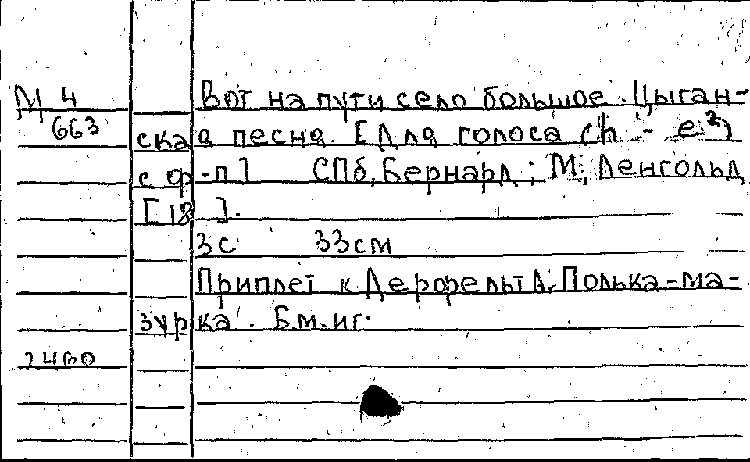 М 4 Вот на пути село большое. Цыган-
663 ская песня. [Для голоса (h - e²)
с ф-п] СПб, Бернард; М, Ленгольд
[18 ].
3с 33см
Приплет к Дерфельт А. Полька-ма-
зурка. Б.м.иг.